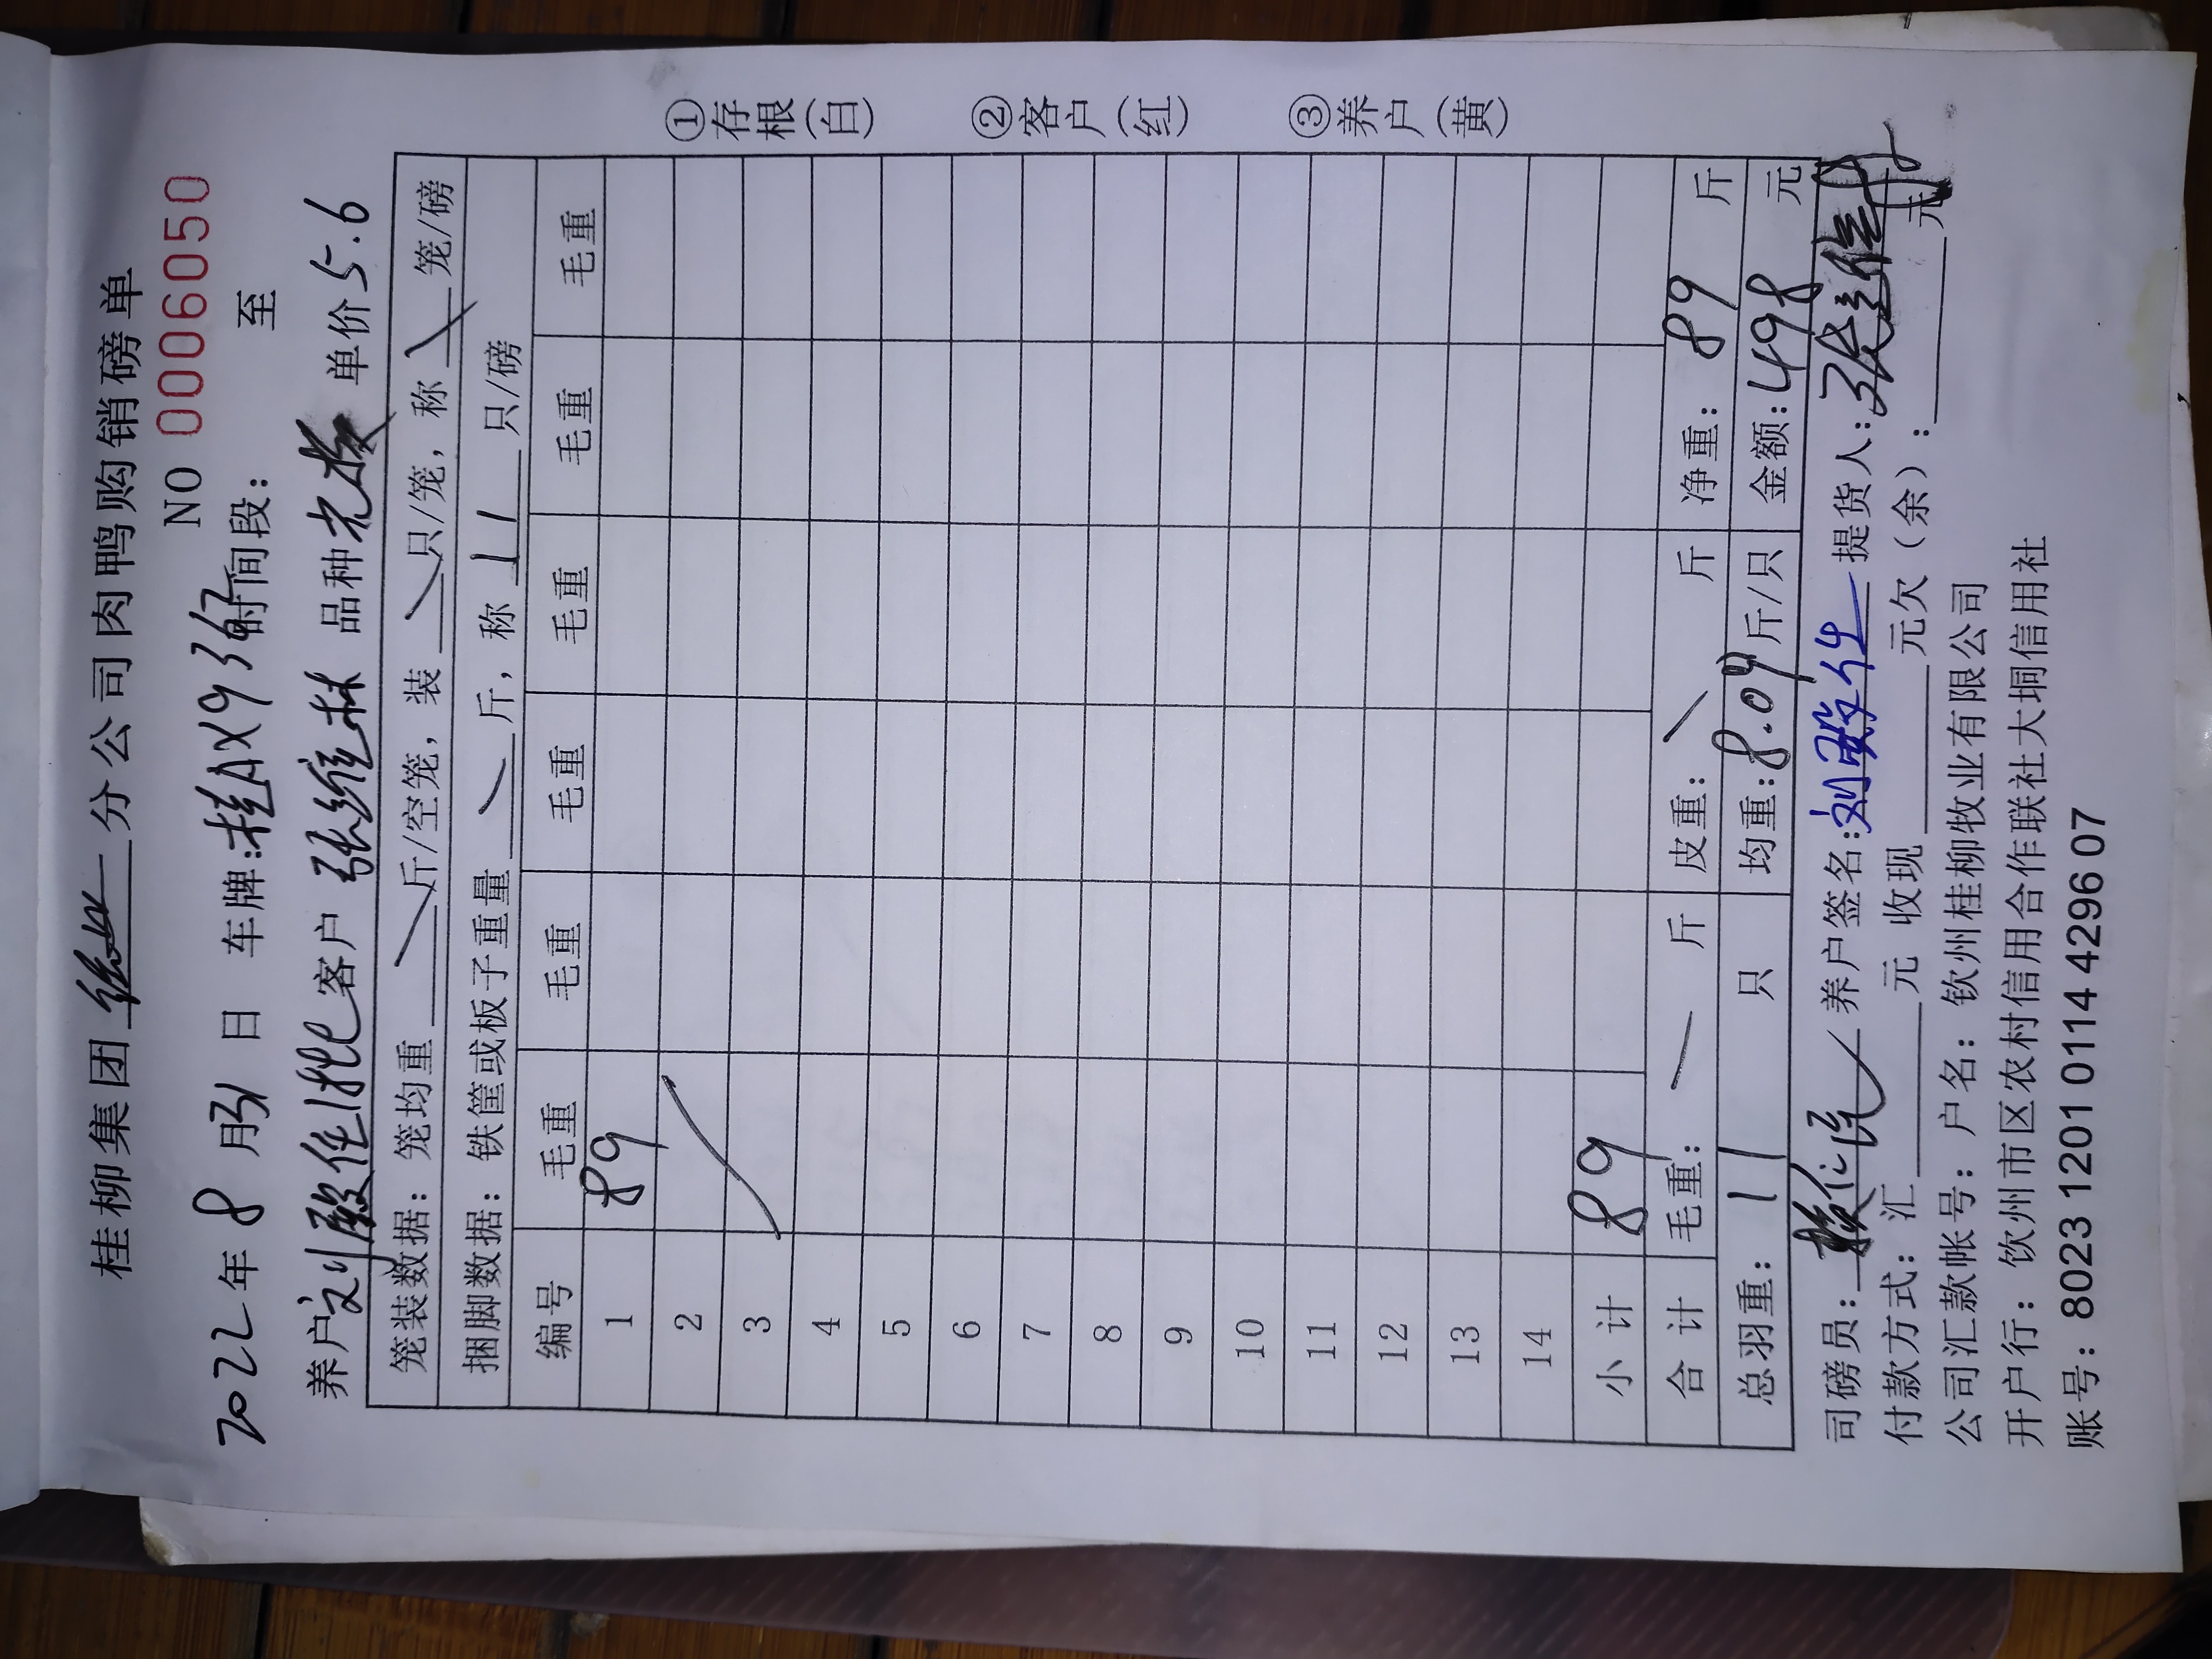 桂柳集团 分公司肉鸭购销磅单
NO 0006050
2022年 8 月31日 车牌:桂AX936 时间段: 至
养户 刘 客户 张维林 品种 单价 5.6
笼装数据: 笼均重 斤/空笼, 装 只/笼, 称 笼/磅
捆脚数据: 铁筐或板子重量 斤, 称 11 只/磅
编号 毛重 毛重 毛重 毛重 毛重 毛重
1 89
2
3
4
5
6
7
8
9
10
11
12
13
14
小计 89
合计 毛重: 斤 皮重: 斤 净重: 89 斤
总羽重: 11 只 均重: 8.09 斤/只 金额: 498 元
①存根(白) ②客户(红) ③养户(黄)
司磅员: 养户签名: 刘 提货人: 张维林
付款方式: 汇 元 收现 元欠(余): 元
公司汇款帐号: 户名: 钦州桂柳牧业有限公司
开户行: 钦州市区农村信用合作联社大垌信用社
账号: 8023 1201 0114 4296 07